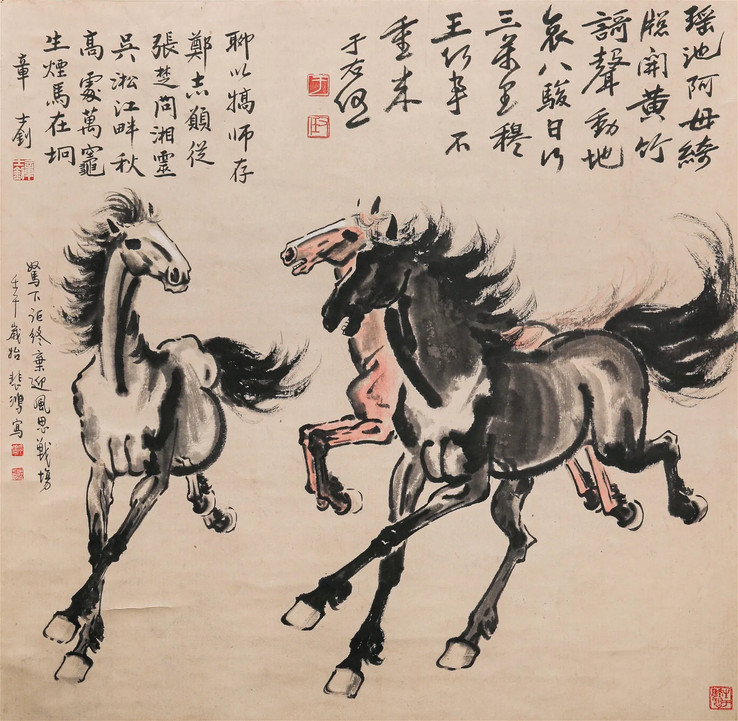 瑶池阿母綺
牕開黄竹
謌聲動地
哀八駿日行
三萬里穆
王何事不
重来
于右任
聊以犒师存
鄭志願從
張楚問湘靈
吳淞江畔秋
高處萬竈
生煙馬在坰
章士釗
駑下詎終棄迎風思戰塲
壬午歲始悲鴻寫